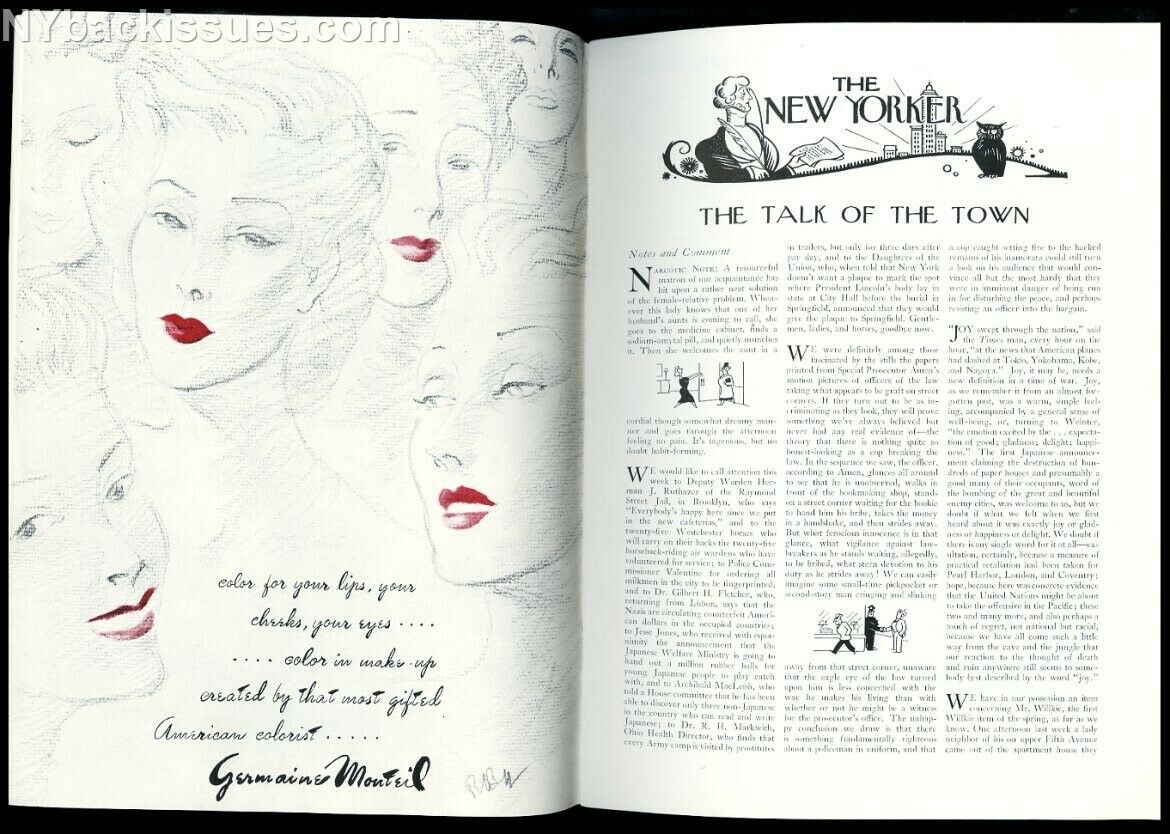 NYbackissues.com
color for your lips, your
cheeks, your eyes ....
.... color in make-up
created by that most gifted
American colorist .....
Germaine Monteil
THE
NEW YORKER
THE TALK OF THE TOWN
Notes and Comment
NARCOTIC NOTE: A resourceful
matron of our acquaintance has
hit upon a rather neat solution
of the female-relative problem. When-
ever this lady knows that one of her
husband's aunts is coming to call, she
goes to the medicine cabinet, finds a
sodium-amytal pill, and quietly munches
it. Then she welcomes the aunt in a
cordial though somewhat dreamy man-
ner and goes through the afternoon
feeling no pain. It's ingenious, but no
doubt habit-forming.
WE would like to call attention this
week to Deputy Warden Her-
man J. Ruthazer of the Raymond
Street Jail, in Brooklyn, who says
"Everybody's happy here since we put
in the new cafeterias," and to the
twenty-five Westchester horses who
will carry on their backs the twenty-five
horseback-riding air wardens who have
volunteered for service; to Police Com-
missioner Valentine for ordering all
milkmen in the city to be fingerprinted,
and to Dr. Gilbert H. Fletcher, who,
returning from Lisbon, says that the
Nazis are circulating counterfeit Ameri-
can dollars in the occupied countries;
to Jesse Jones, who received with equa-
nimity the announcement that the
Japanese Welfare Ministry is going to
hand out a million rubber balls for
young Japanese people to play catch
with, and to Archibald MacLeish, who
told a House committee that he has been
able to discover only three non-Japanese
in the country who can read and write
Japanese; to Dr. R. H. Markwith,
Ohio Health Director, who finds that
every Army camp is visited by prostitutes
in trailers, but only for three days after
pay day, and to the Daughters of the
Union, who, when told that New York
doesn't want a plaque to mark the spot
where President Lincoln's body lay in
state at City Hall before the burial in
Springfield, announced that they would
give the plaque to Springfield. Gentle-
men, ladies, and horses, goodbye now.
WE were definitely among those
fascinated by the stills the papers
printed from Special Prosecutor Amen's
motion pictures of officers of the law
taking what appears to be graft on street
corners. If they turn out to be as in-
criminating as they look, they will prove
something we've always believed but
never had any real evidence of—the
theory that there is nothing quite so
honest-looking as a cop breaking the
law. In the sequence we saw, the officer,
according to Amen, glances all around
to see that he is unobserved, walks in
front of the bookmaking shop, stands
on a street corner waiting for the bookie
to hand him his bribe, takes the money
in a handshake, and then strides away.
But what ferocious innocence is in that
glance, what vigilance against law-
breakers as he stands waiting, allegedly,
to be bribed, what stern devotion to his
duty as he strides away! We can easily
imagine some small-time pickpocket or
second-story man cringing and slinking
away from that street corner, unaware
that the eagle eye of the law turned
upon him is less concerned with the
way he makes his living than with
whether or not he might be a witness
for the prosecutor's office. The unhap-
py conclusion we draw is that there
is something fundamentally righteous
about a policeman in uniform, and that
a cop caught setting fire to the hacked
remains of his inamorata could still turn
a look on his audience that would con-
vince all but the most hardy that they
were in imminent danger of being run
in for disturbing the peace, and perhaps
resisting an officer into the bargain.
"JOY swept through the nation," said
the Times man, every hour on the
hour, "at the news that American planes
had slashed at Tokio, Yokohama, Kobe,
and Nagoya." Joy, it may be, needs a
new definition in a time of war. Joy,
as we remember it from an almost for-
gotten past, was a warm, simple feel-
ing, accompanied by a general sense of
well-being, or, turning to Webster,
"the emotion excited by the . . . expecta-
tion of good; gladness; delight; happi-
ness." The first Japanese announce-
ment claiming the destruction of hun-
dreds of paper houses and presumably a
good many of their occupants, word of
the bombing of the great and beautiful
enemy cities, was welcome to us, but we
doubt if what we felt when we first
heard about it was exactly joy or glad-
ness or happiness or delight. We doubt if
there is any single word for it at all—ex-
ultation, certainly, because a measure of
practical retaliation had been taken for
Pearl Harbor, London, and Coventry;
hope, because here was concrete evidence
that the United Nations might be about
to take the offensive in the Pacific; these
two and many more, and also perhaps a
touch of regret, not national but racial,
because we have all come such a little
way from the cave and the jungle that
our reaction to the thought of death
and ruin anywhere still seems to some-
body best described by the word "joy."
WE have in our possession an item
concerning Mr. Willkie, the first
Willkie item of the spring, as far as we
know. One afternoon last week a lady
neighbor of his on upper Fifth Avenue
came out of the apartment house they